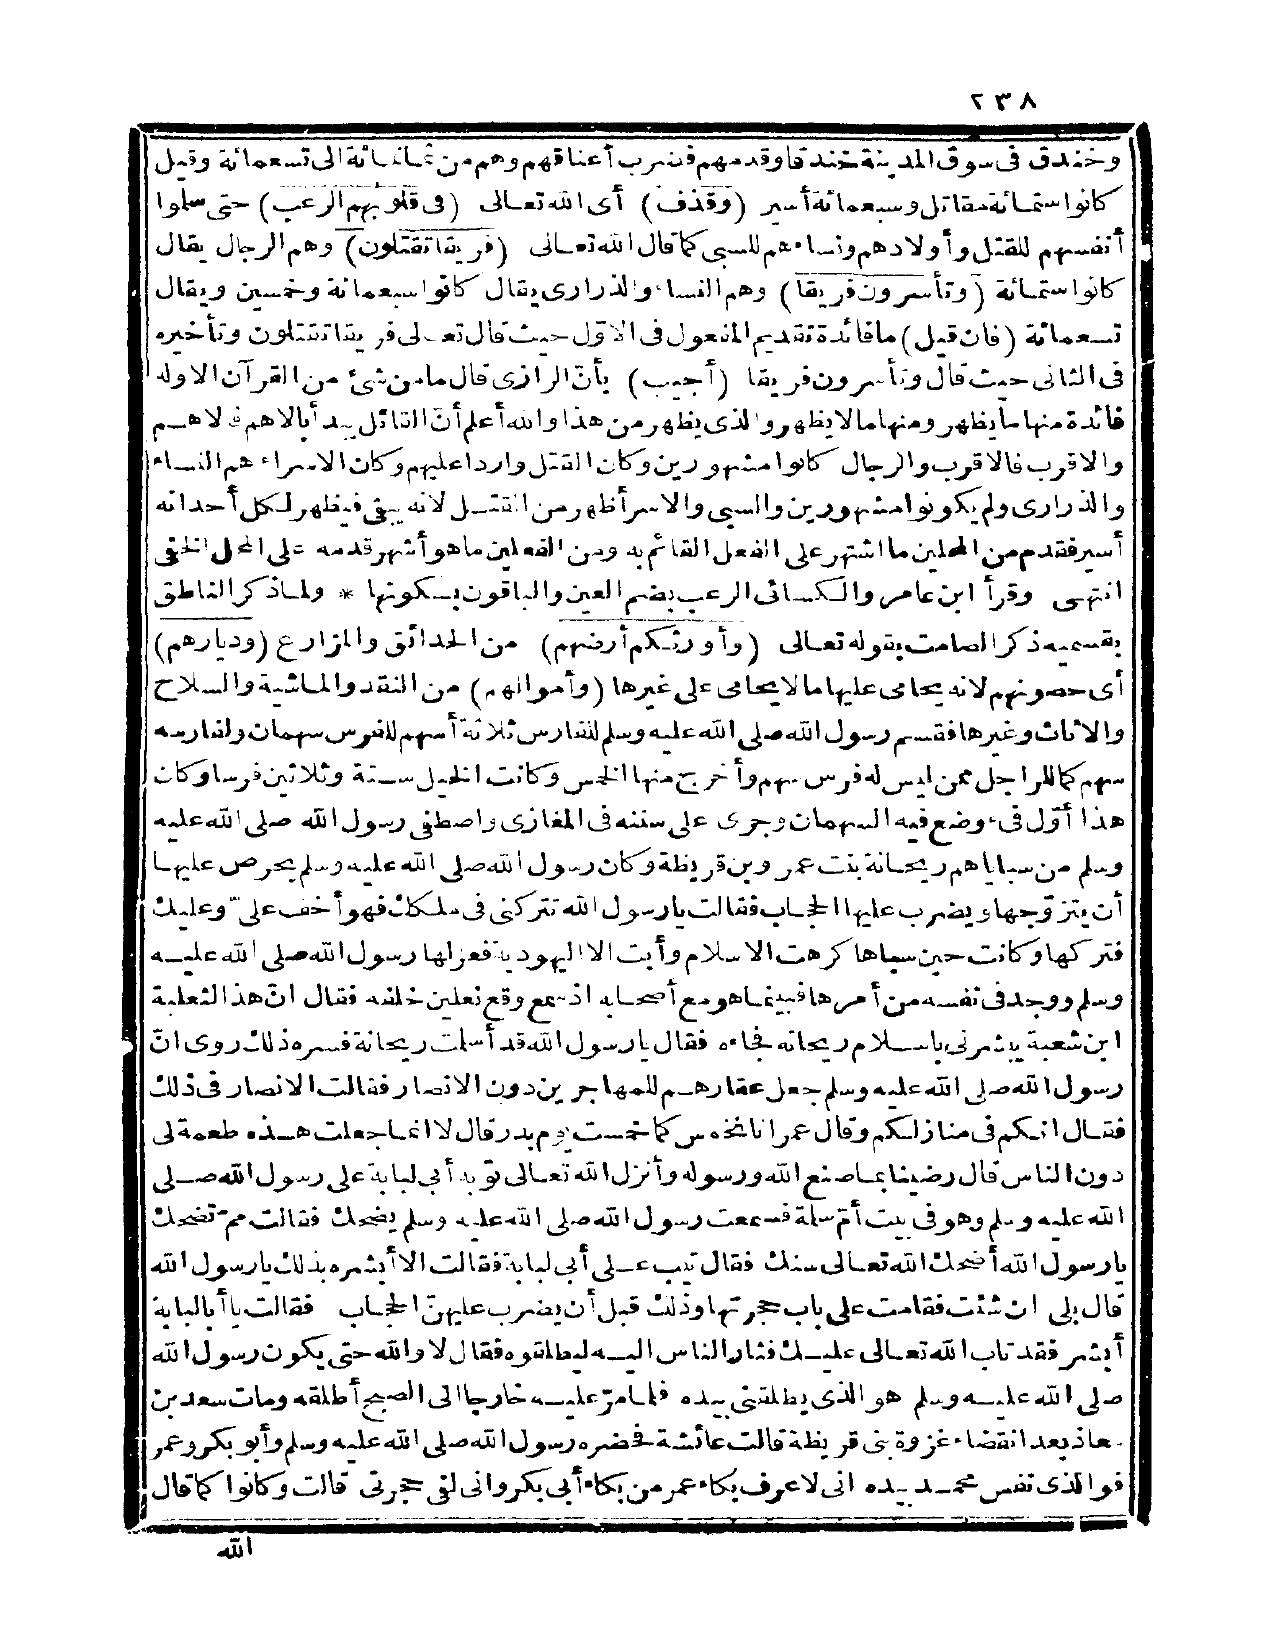 ٢٣٨
وخندق فى سوق المدينة خندقا وقدمهم فضرب أعناقهم وهم من ثمانمائة الى تسعمائة وقيل
كانوا ستمائة مقاتل وسبعمائة أسير (وقذف) أى الله تعالى (فى قلوبهم الرعب) حتى سلوا
أنفسهم للقتل وأولادهم ونساءهم للسبى كما قال الله تعالى (فريقا تقتلون) وهم الرجال يقال
كانوا ستمائة (وتأسرون فريقا) وهم النساء والذرارى يقال كانوا سبعمائة وخمسين ويقال
تسعمائة (فان قيل) ما فائدة تقديم المفعول فى الاوّل حيث قال تعالى فريقا تقتلون وتأخيره
فى الثانى حيث قال وتأسرون فريقا (أجيب) بأنّ الرازى قال ما من شئ من القرآن الاوله
فائدة منها ما يظهر ومنها ما لا يظهر والذى يظهر من هذا والله أعلم أنّ القائل يبدأ بالاهم فالاهم
والاقرب فالاقرب والرجال كانوا مشهورين وكان القتل واردا عليهم وكان الاسراء هم النساء
والذرارى ولم يكونوا مشهورين والسبى والاسر أظهر من القتل لانه يبقى فيظهر لكل أحد انه
أسير فقدم من المحلين ما اشتهر على الفعل القائم به ومن الفعلين ما هو أشهر قدمه على المحل الخفى
انتهى وقرأ ابن عامر والكسائى الرعب بضم العين والباقون بسكونها * ولما ذكر الناطق
بقسميه ذكر الصامت بقوله تعالى (وأورثكم أرضهم) من الحدائق والمزارع (وديارهم)
أى حصونهم لانه يحامى عليها ما لا يحامى على غيرها (وأموالهم) من النقد والماشية والسلاح
والاثاث وغيرها فقسم رسول الله صلى الله عليه وسلم للفارس ثلاثة أسهم للفرس سهمان ولفارسه
سهم كما للراجل ممن ليس له فرس سهم وأخرج منها الخمس وكانت الخيل ستة وثلاثين فرسا وكان
هذا أوّل فىء وضع فيه السهمان وجرى على سننه فى المغازى واصطفى رسول الله صلى الله عليه
وسلم من سباياهم ريحانة بنت عمرو بن قريظة وكان رسول الله صلى الله عليه وسلم يحرص عليها
أن يتزوّجها ويضرب عليها الحجاب فقالت يا رسول الله تتركنى فى ملكك فهو أخف علىّ وعليك
فتركها وكانت حين سباها كرهت الاسلام وأبت الا اليهودية فعزلها رسول الله صلى الله عليه
وسلم ووجد فى نفسه من أمرها فبينما هو مع أصحابه اذ سمع وقع نعلين خلفه فقال انّ هذا الثعلبة
ابن شعبة يبشرنى باسلام ريحانه فجاءه فقال يا رسول الله قد أسلمت ريحانة فسره ذلك روى انّ
رسول الله صلى الله عليه وسلم جعل عقارهم للمهاجرين دون الانصار فقالت الانصار فى ذلك
فقال انكم فى منازلكم وقال عمر انا نخمس كما خمست يوم بدر قال لا انما جعلت هذه طعمة لى
دون الناس قال رضينا بما صنع الله ورسوله وأنزل الله تعالى توبة أبى لبابة على رسول الله صلى
الله عليه وسلم وهو فى بيت أمّ سلمة فسمعت رسول الله صلى الله عليه وسلم يضحك فقالت ممّ تضحك
يا رسول الله أضحك الله تعالى سنك فقال تيب على أبى لبابة فقالت الا أبشره بذلك يا رسول الله
قال بلى ان شئت فقامت على باب حجرتها وذلك قبل أن يضرب عليهنّ الحجاب فقالت يا أبا لبابة
أبشر فقد تاب الله تعالى عليك فثار الناس اليه ليطلقوه فقال لا والله حتى يكون رسول الله
صلى الله عليه وسلم هو الذى يطلقنى بيده فلما مرّ عليه خارجا الى الصبح أطلقه ومات سعد بن
معاذ بعد انقضاء غزوة بنى قريظة قالت عائشة فحضره رسول الله صلى الله عليه وسلم وأبو بكر وعمر
فوالذى نفس محمد بيده انى لاعرف بكاء عمر من بكاء أبى بكر وانى لفى حجرتى قالت وكانوا كما قال
الله